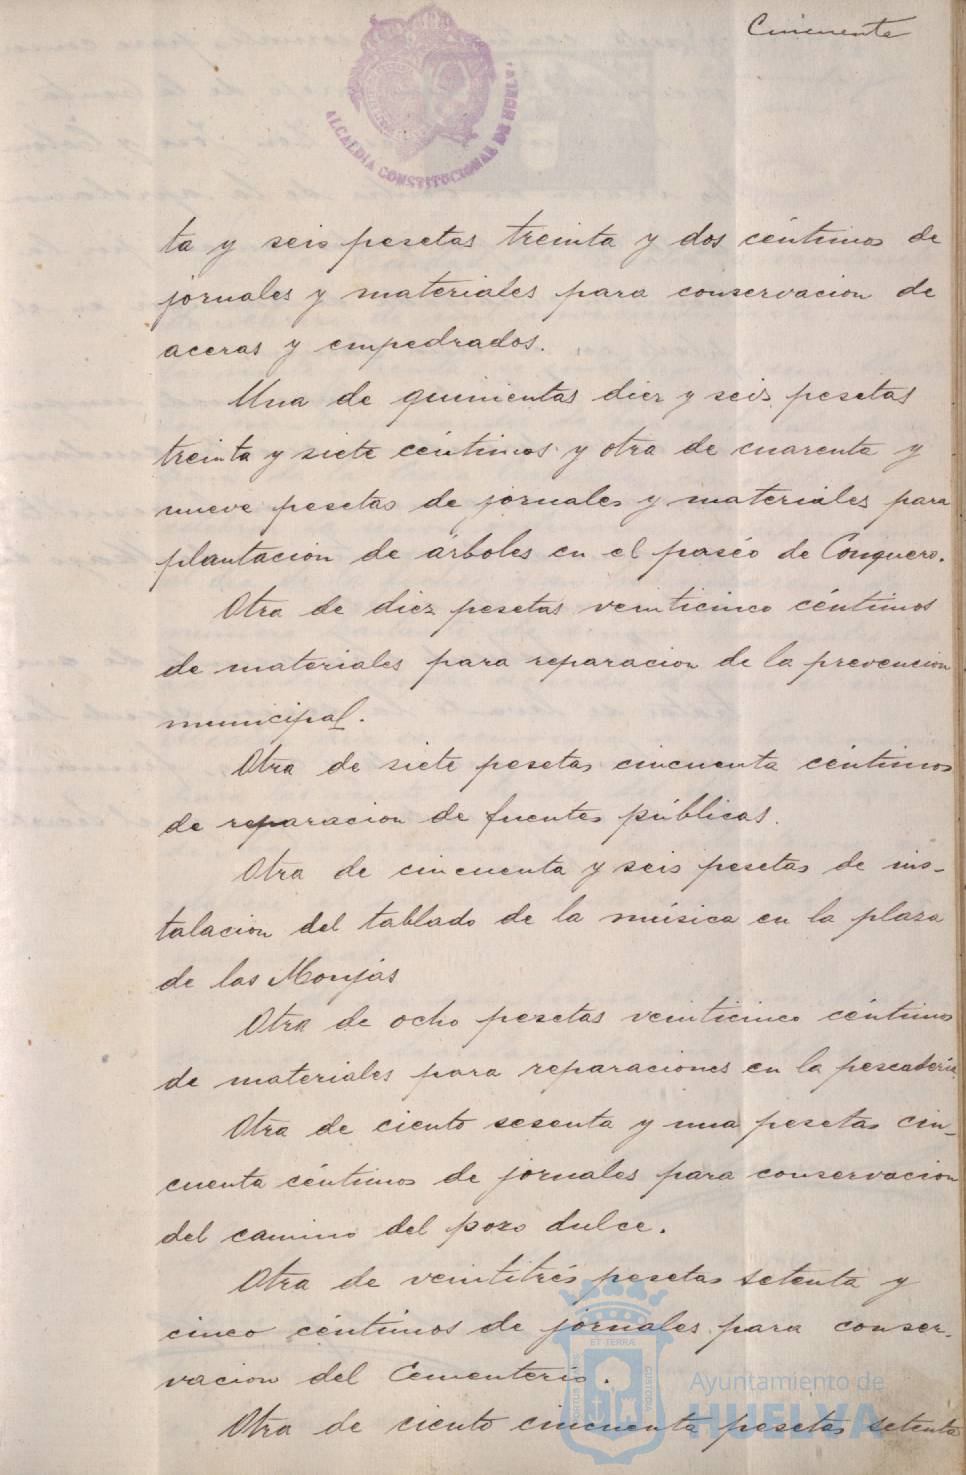 Cincuenta
ALCALDÍA CONSTITUCIONAL DE HUELVA
ta y seis pesetas treinta y dos céntimos de
jornales y materiales para conservacion de
aceras y empedrados.
Una de quinientas diez y seis pesetas
treinta y siete céntimos y otra de cuarenta y
nueve pesetas de jornales y materiales para
plantacion de árboles en el paséo de Conquero.
Otra de diez pesetas veinticinco céntimos
de materiales para reparacion de la prevencion
municipal.
Otra de siete pesetas cincuenta céntimos
de reparacion de fuentes públicas.
Otra de cincuenta y seis pesetas de ins-
talacion del tablado de la música en la plaza
de las Monjas
Otra de ocho pesetas veinticinco céntimos
de materiales para reparaciones en la pescadería
Otra de ciento sesenta y una pesetas cin-
cuenta céntimos de jornales para conservacion
del camino del pozo dulce.
Otra de veintitrés pesetas setenta y
cinco céntimos de jornales para conser-
vacion del Cementerio.
Otra de ciento cincuenta pesetas setenta
ET TERRÆ
CUSTODIA
Ayuntamiento de
HUELVA